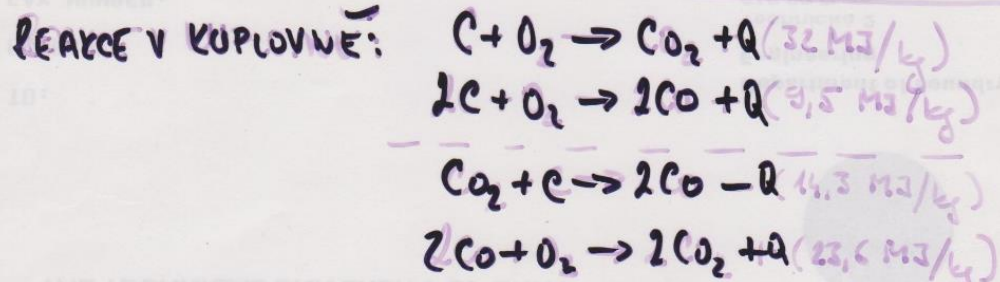 REAKCE V KUPLOVNĚ: C + O₂ → CO₂ + Q (32 MJ/kg)
2C + O₂ → 2CO + Q (9,5 MJ/kg)
CO₂ + C → 2CO − Q (14,3 MJ/kg)
2CO + O₂ → 2CO₂ + Q (23,6 MJ/kg)